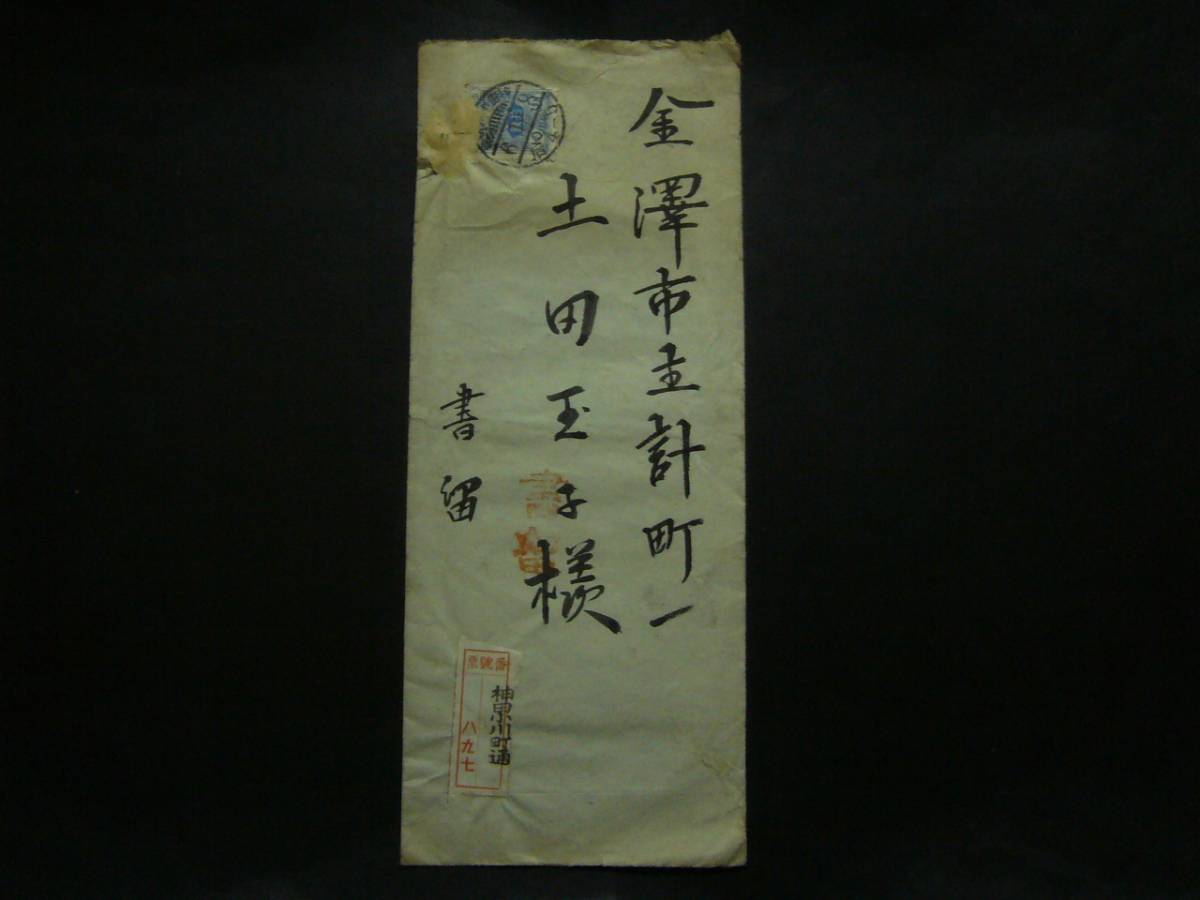 金澤市主計町一
土田玉子様
書留
書留
番號票
神田小川町通
八九七